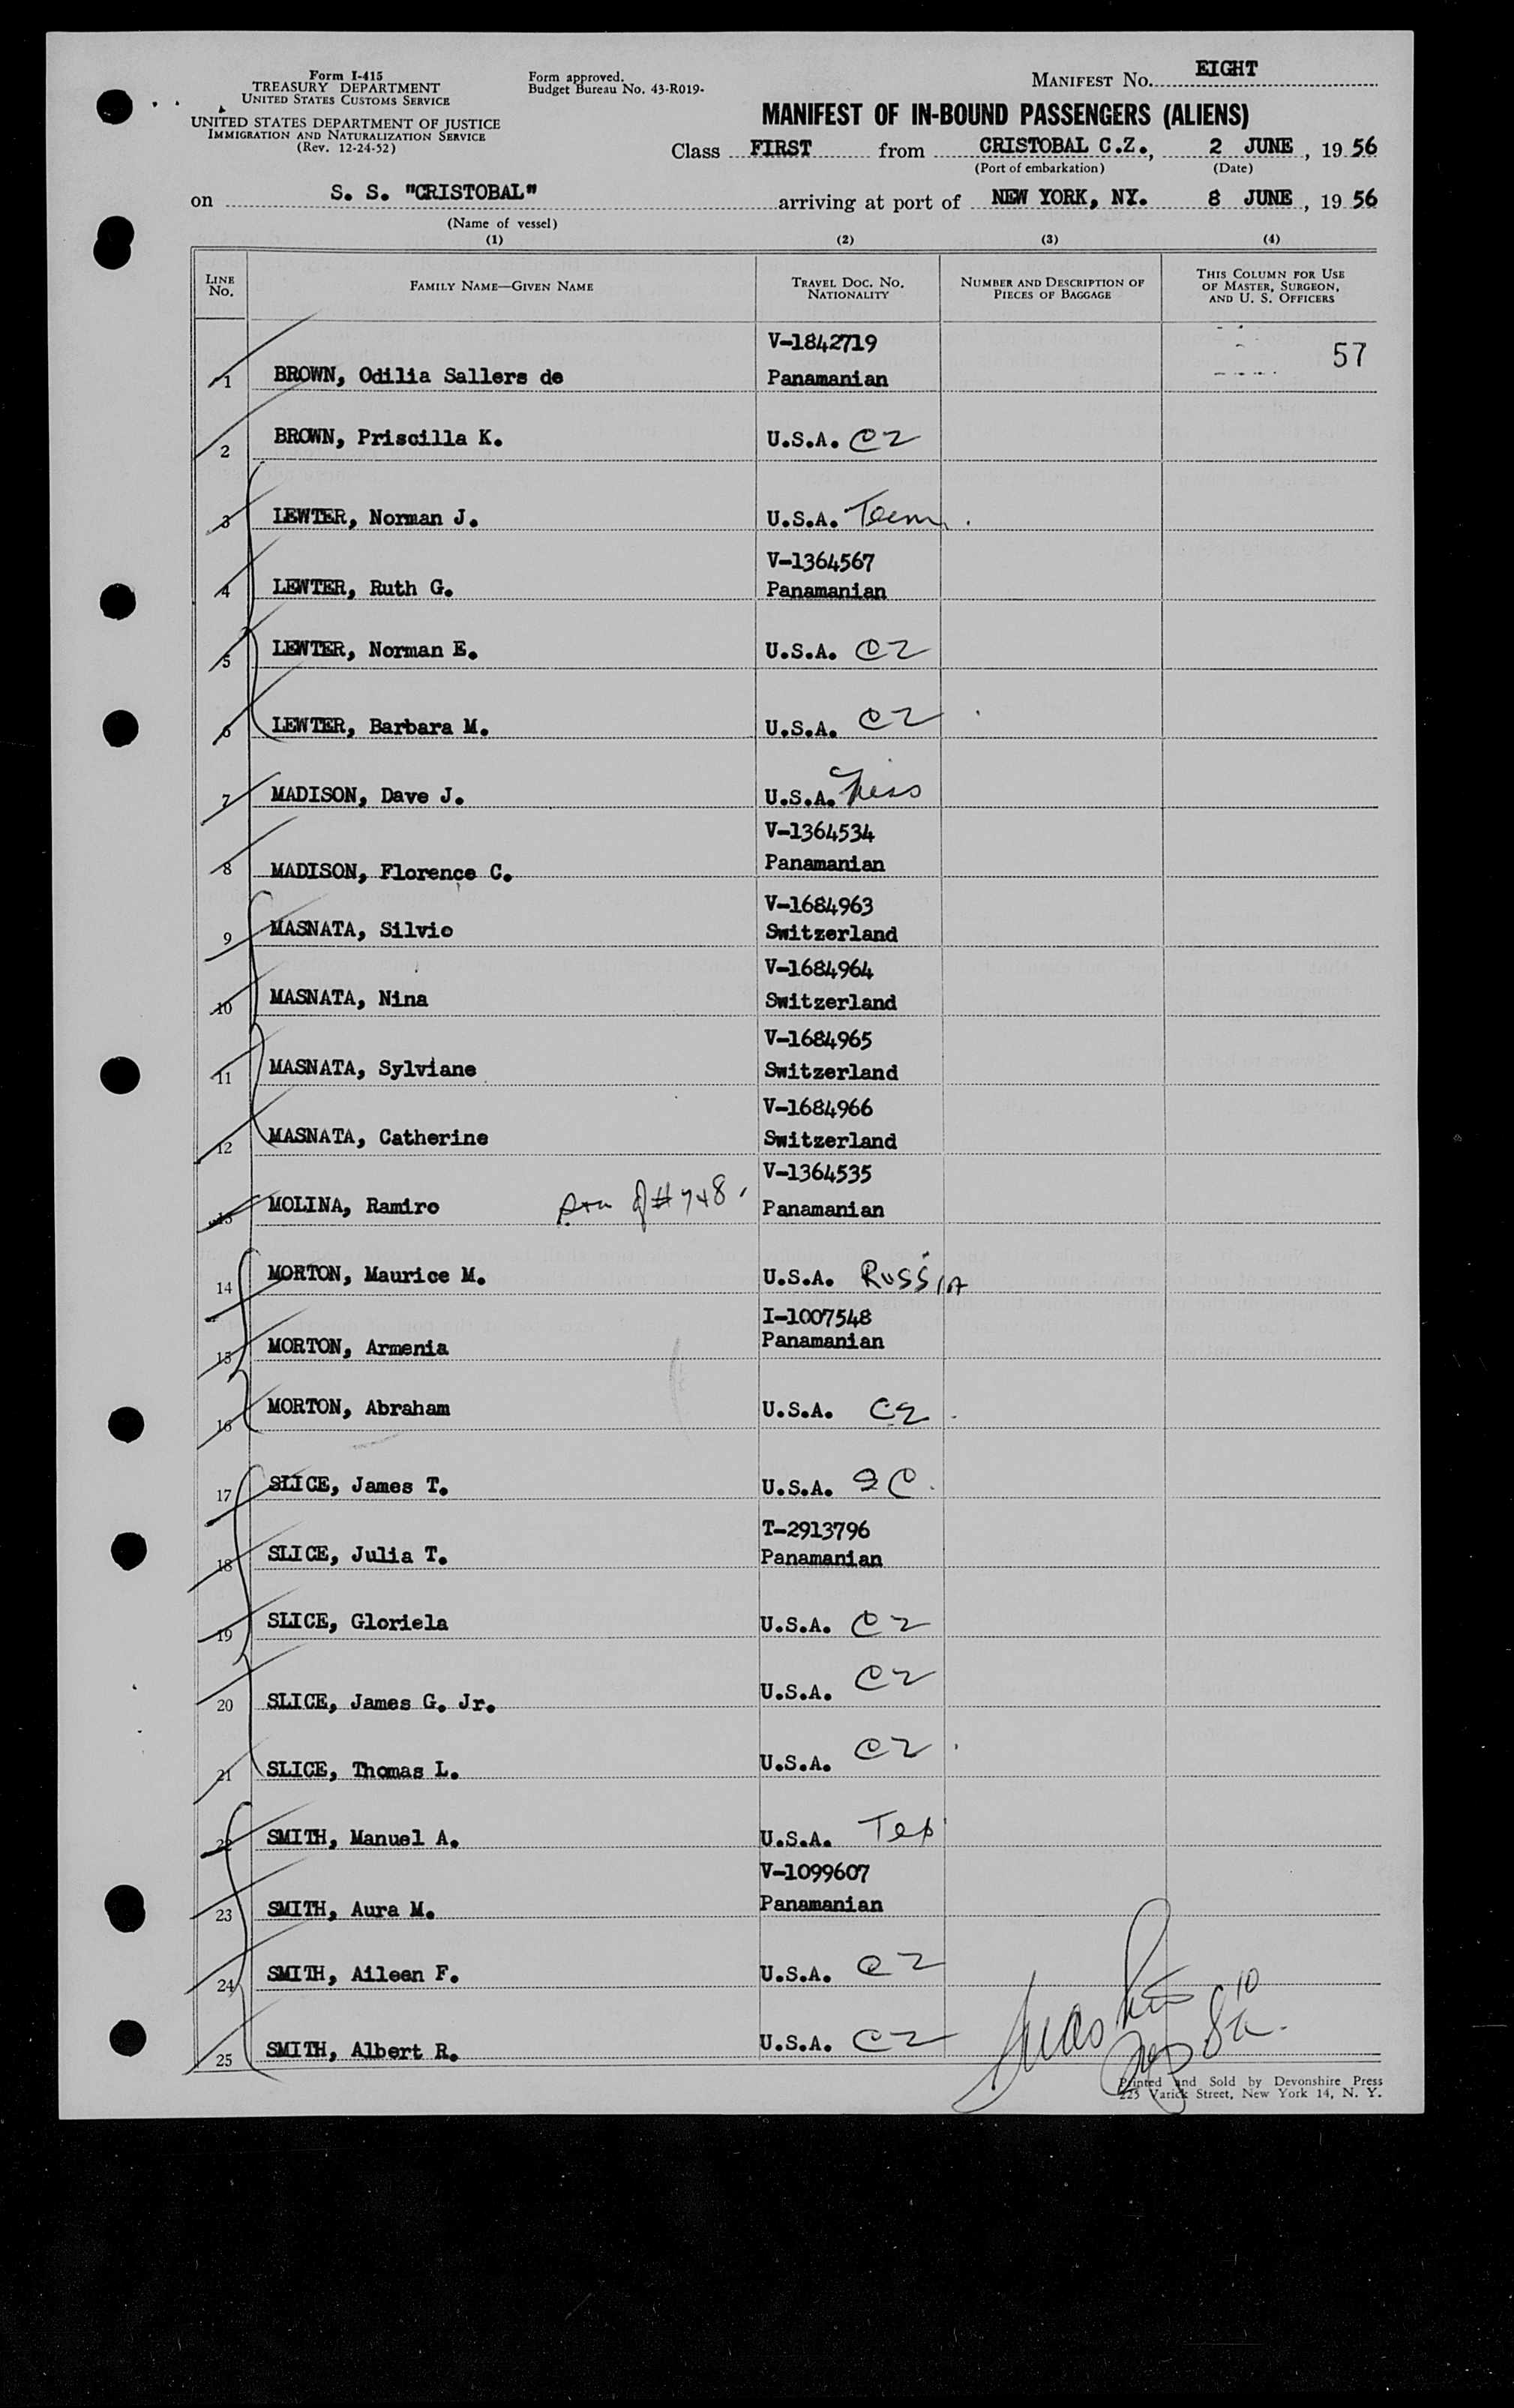 Form I-415
TREASURY DEPARTMENT
UNITED STATES CUSTOMS SERVICE
UNITED STATES DEPARTMENT OF JUSTICE
IMMIGRATION AND NATURALIZATION SERVICE
(Rev. 12-24-52)
Form approved.
Budget Bureau No. 43-R019-
MANIFEST No. EIGHT
MANIFEST OF IN-BOUND PASSENGERS (ALIENS)
Class FIRST from CRISTOBAL C.Z., 2 JUNE, 19 56
(Port of embarkation) (Date)
on S. S. "CRISTOBAL" arriving at port of NEW YORK, NY. 8 JUNE, 19 56
(Name of vessel)
(1) (2) (3) (4)
LINE No. FAMILY NAME—GIVEN NAME TRAVEL DOC. NO. NATIONALITY NUMBER AND DESCRIPTION OF PIECES OF BAGGAGE THIS COLUMN FOR USE OF MASTER, SURGEON, AND U. S. OFFICERS
V-1842719 57
1 BROWN, Odilia Sallers de Panamanian
2 BROWN, Priscilla K. U.S.A. CZ
3 LEWTER, Norman J. U.S.A. Tenn.
V-1364567
4 LEWTER, Ruth G. Panamanian
5 LEWTER, Norman E. U.S.A. CZ
6 LEWTER, Barbara M. U.S.A. CZ
7 MADISON, Dave J. U.S.A. Miss
V-1364534
8 MADISON, Florence C. Panamanian
V-1684963
9 MASNATA, Silvio Switzerland
V-1684964
10 MASNATA, Nina Switzerland
V-1684965
11 MASNATA, Sylviane Switzerland
V-1684966
12 MASNATA, Catherine Switzerland
V-1364535
13 MOLINA, Ramiro Son of #7+8. Panamanian
14 MORTON, Maurice M. U.S.A. RUSSIA
I-1007548
15 MORTON, Armenia Panamanian
16 MORTON, Abraham U.S.A. CZ
17 SLICE, James T. U.S.A. SC.
T-2913796
18 SLICE, Julia T. Panamanian
19 SLICE, Gloriela U.S.A. CZ
20 SLICE, James G. Jr. U.S.A. CZ
21 SLICE, Thomas L. U.S.A. CZ
22 SMITH, Manuel A. U.S.A. Tex
V-1099607
23 SMITH, Aura M. Panamanian
24 SMITH, Aileen F. U.S.A. CZ
25 SMITH, Albert R. U.S.A. CZ
Printed and Sold by Devonshire Press
225 Varick Street, New York 14, N. Y.